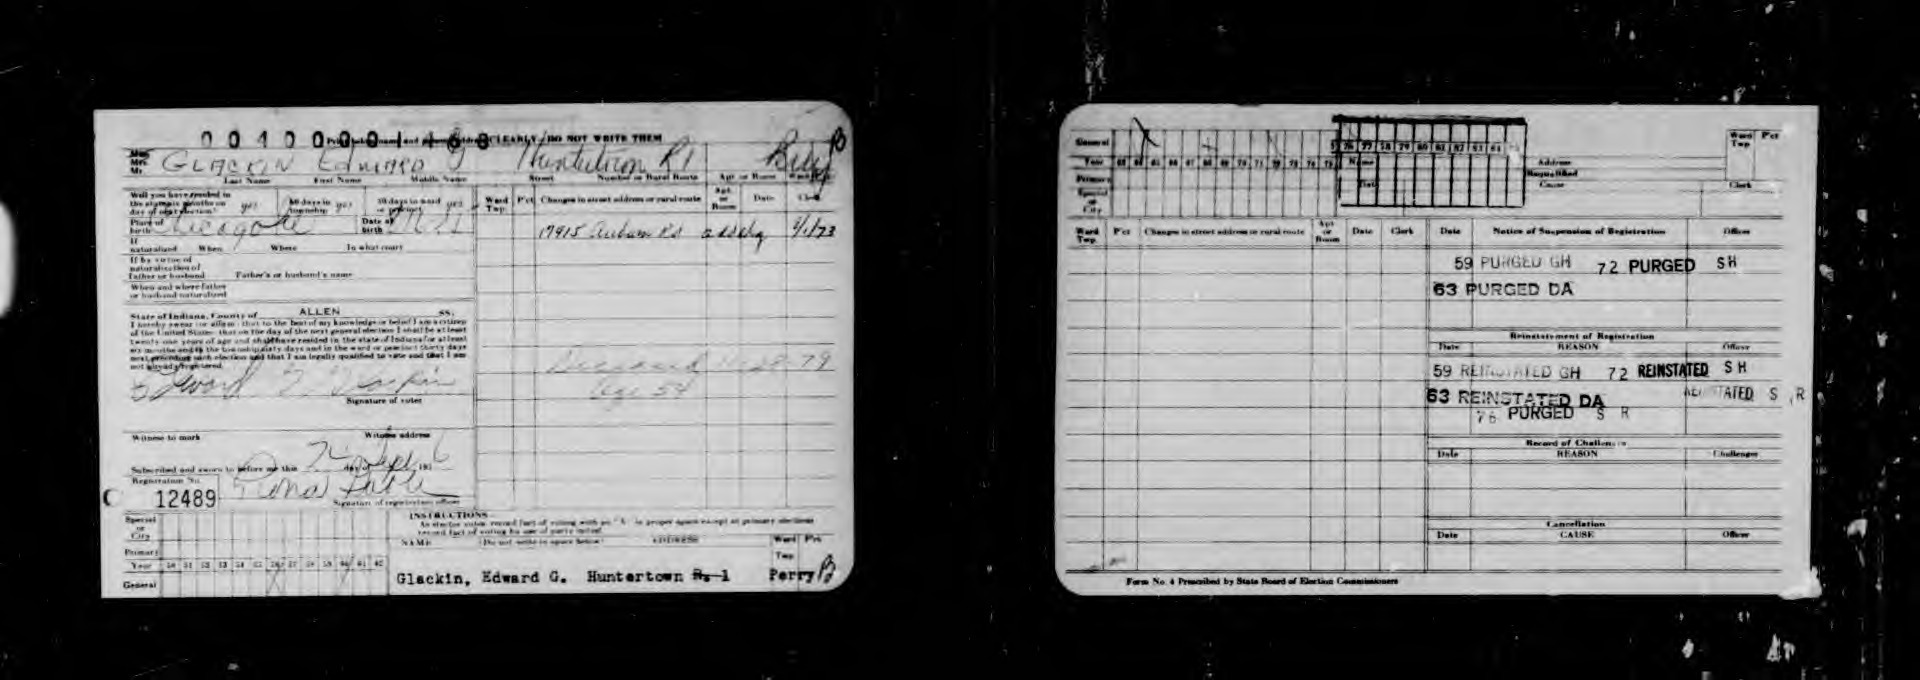 00400001468 CLEARLY / DO NOT WRITE THEM
Mrs.
Mr. GLACKIN EDWARD G Huntertown R1
Last Name First Name Middle Name Street Number or Rural Route Apt or Room
Will you have resided in
the state six months on
day of next election? yes 60 days in township yes 30 days in ward or precinct yes
Ward Twp. P'ct Changes in street address or rural route Apt. or Room Date Clerk
Place of birth Chicago Ill Date of birth
17915 Auburn Rd 9/1/73
If naturalized When Where In what court
If by virtue of
naturalization of
Father or husband Father's or husband's name
When and where father
or husband naturalized
State of Indiana, County of ALLEN SS.
I hereby swear (or affirm) that to the best of my knowledge or belief I am a citizen
of the United States; that on the day of the next general election I shall be at least
twenty-one years of age and shall have resided in the state of Indiana for at least
six months and in the township sixty days and in the ward or precinct thirty days
next preceding such election and that I am legally qualified to vote and that I am
not already registered.
Deceased 79
Age 54
Edward G. Glackin
Signature of voter
Witness to mark Witness address
Subscribed and sworn to before me this day of Sept 195
Registration No.
12489
Signature of registration officer
INSTRUCTIONS
As elector votes record fact of voting with an "X" in proper space except at primary elections
record fact of voting by use of party initial.
Special
or
City
NAME (Do not write in space below) ADDRESS Ward Twp P'ct
Primary
Year 50 51 52 53 54 55 56 57 58 59 60 61 62
General
Glackin, Edward G. Huntertown R. 1 Perry B
General
Year 63 64 65 66 67 68 69 70 71 72 73 74 75 76 77 78 79 80 81 82 83 84
Name
Primary
Special
or
City
Address
Requalified
Cause Clerk
Ward Twp P'ct
Ward Twp. P'ct Changes in street address or rural route Apt or Room Date Clerk Date Notice of Suspension of Registration Officer
59 PURGED GH 72 PURGED SH
63 PURGED DA
Reinstatement of Registration
Date REASON Officer
59 REINSTATED GH 72 REINSTATED SH
63 REINSTATED DA REINSTATED S R
76 PURGED S R
Record of Challenges
Date REASON Challenger
Cancellation
Date CAUSE Officer
Form No. 4 Prescribed by State Board of Election Commissioners